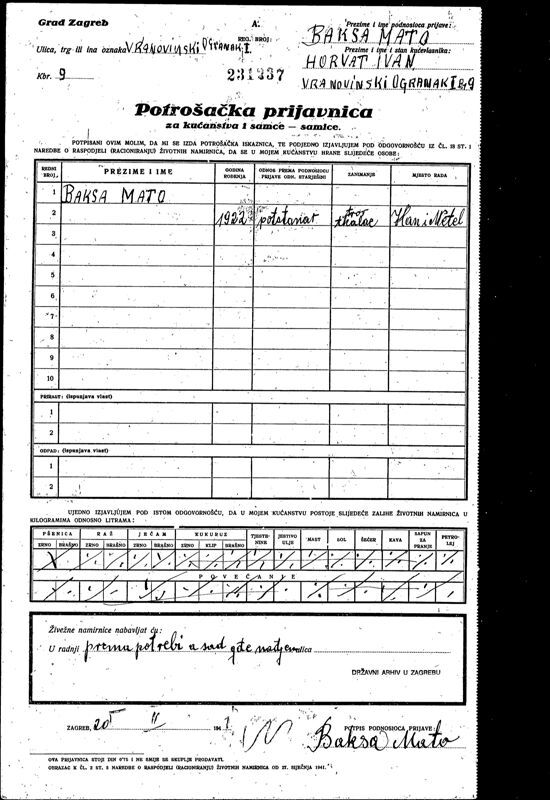 Grad Zagreb
A.
REG. BROJ:
231337
Ulica, trg ili ina oznaka VRANOVINSKI OGRANAK I.
Kbr. 9
Prezime i ime podnosioca prijave:
BAKSA MATO
Prezime i ime i stan kućevlasnika:
HORVAT IVAN
VRANOVINSKI OGRANAK I Br 9
Potrošačka prijavnica
za kućanstva i samce – samice.
POTPISANI OVIM MOLIM, DA MI SE IZDA POTROŠAČKA ISKAZNICA, TE PODJEDNO IZJAVLJUJEM POD ODGOVORNOŠĆU IZ ČL. 18 ST. 1
NAREDBE O RASPODJELI (RACIONIRANJU) ŽIVOTNIH NAMIRNICA, DA SE U MOJEM KUĆANSTVU HRANE SLIJEDEĆE OSOBE:
REDNI BROJ, PREZIME I IME GODINA ROĐENJA ODNOS PREMA PODNOSIOCU PRIJAVE ODN. STARJEŠINI ZANIMANJE MJESTO RADA
1 BAKSA MATO
2 1922 potstanar tkalac
3
4
5
6
7
8
9
10
PRIRAST: (ispunjava vlast)
1
2
OTPAD: (ispunjava vlast)
1
2
UJEDNO IZJAVLJUJEM POD ISTOM ODGOVORNOŠĆU, DA U MOJEM KUĆANSTVU POSTOJE SLIJEDEĆE ZALIHE ŽIVOTNIH NAMIRNICA U
KILOGRAMIMA ODNOSNO LITRAMA:
PŠENICA RAŽ JEČAM KUKURUZ TJESTENINE JESTIVO ULJE MAST SOL ŠEĆER KAVA SAPUN ZA PRANJE PETROLEJ
ZRNO BRAŠNO ZRNO BRAŠNO ZRNO BRAŠNO ZRNO KLIP BRAŠNO
POVEĆANJE
Živežne namirnice nabavljat ću:
U radnji prema potrebi a sad gde nadjem ulica
DRŽAVNI ARHIV U ZAGREBU
ZAGREB, 20 II 1941
POTPIS PODNOSIOCA PRIJAVE:
Baksa Mato
OVA PRIJAVNICA STOJI DIN 0'75 I NE SMIJE SE SKUPLJE PRODAVATI.
OBRAZAC K ČL. 2 ST. 2 NAREDBE O RASPODJELI (RACIONIRANJU) ŽIVOTNIH NAMIRNICA OD 27. SIJEČNJA 1941.